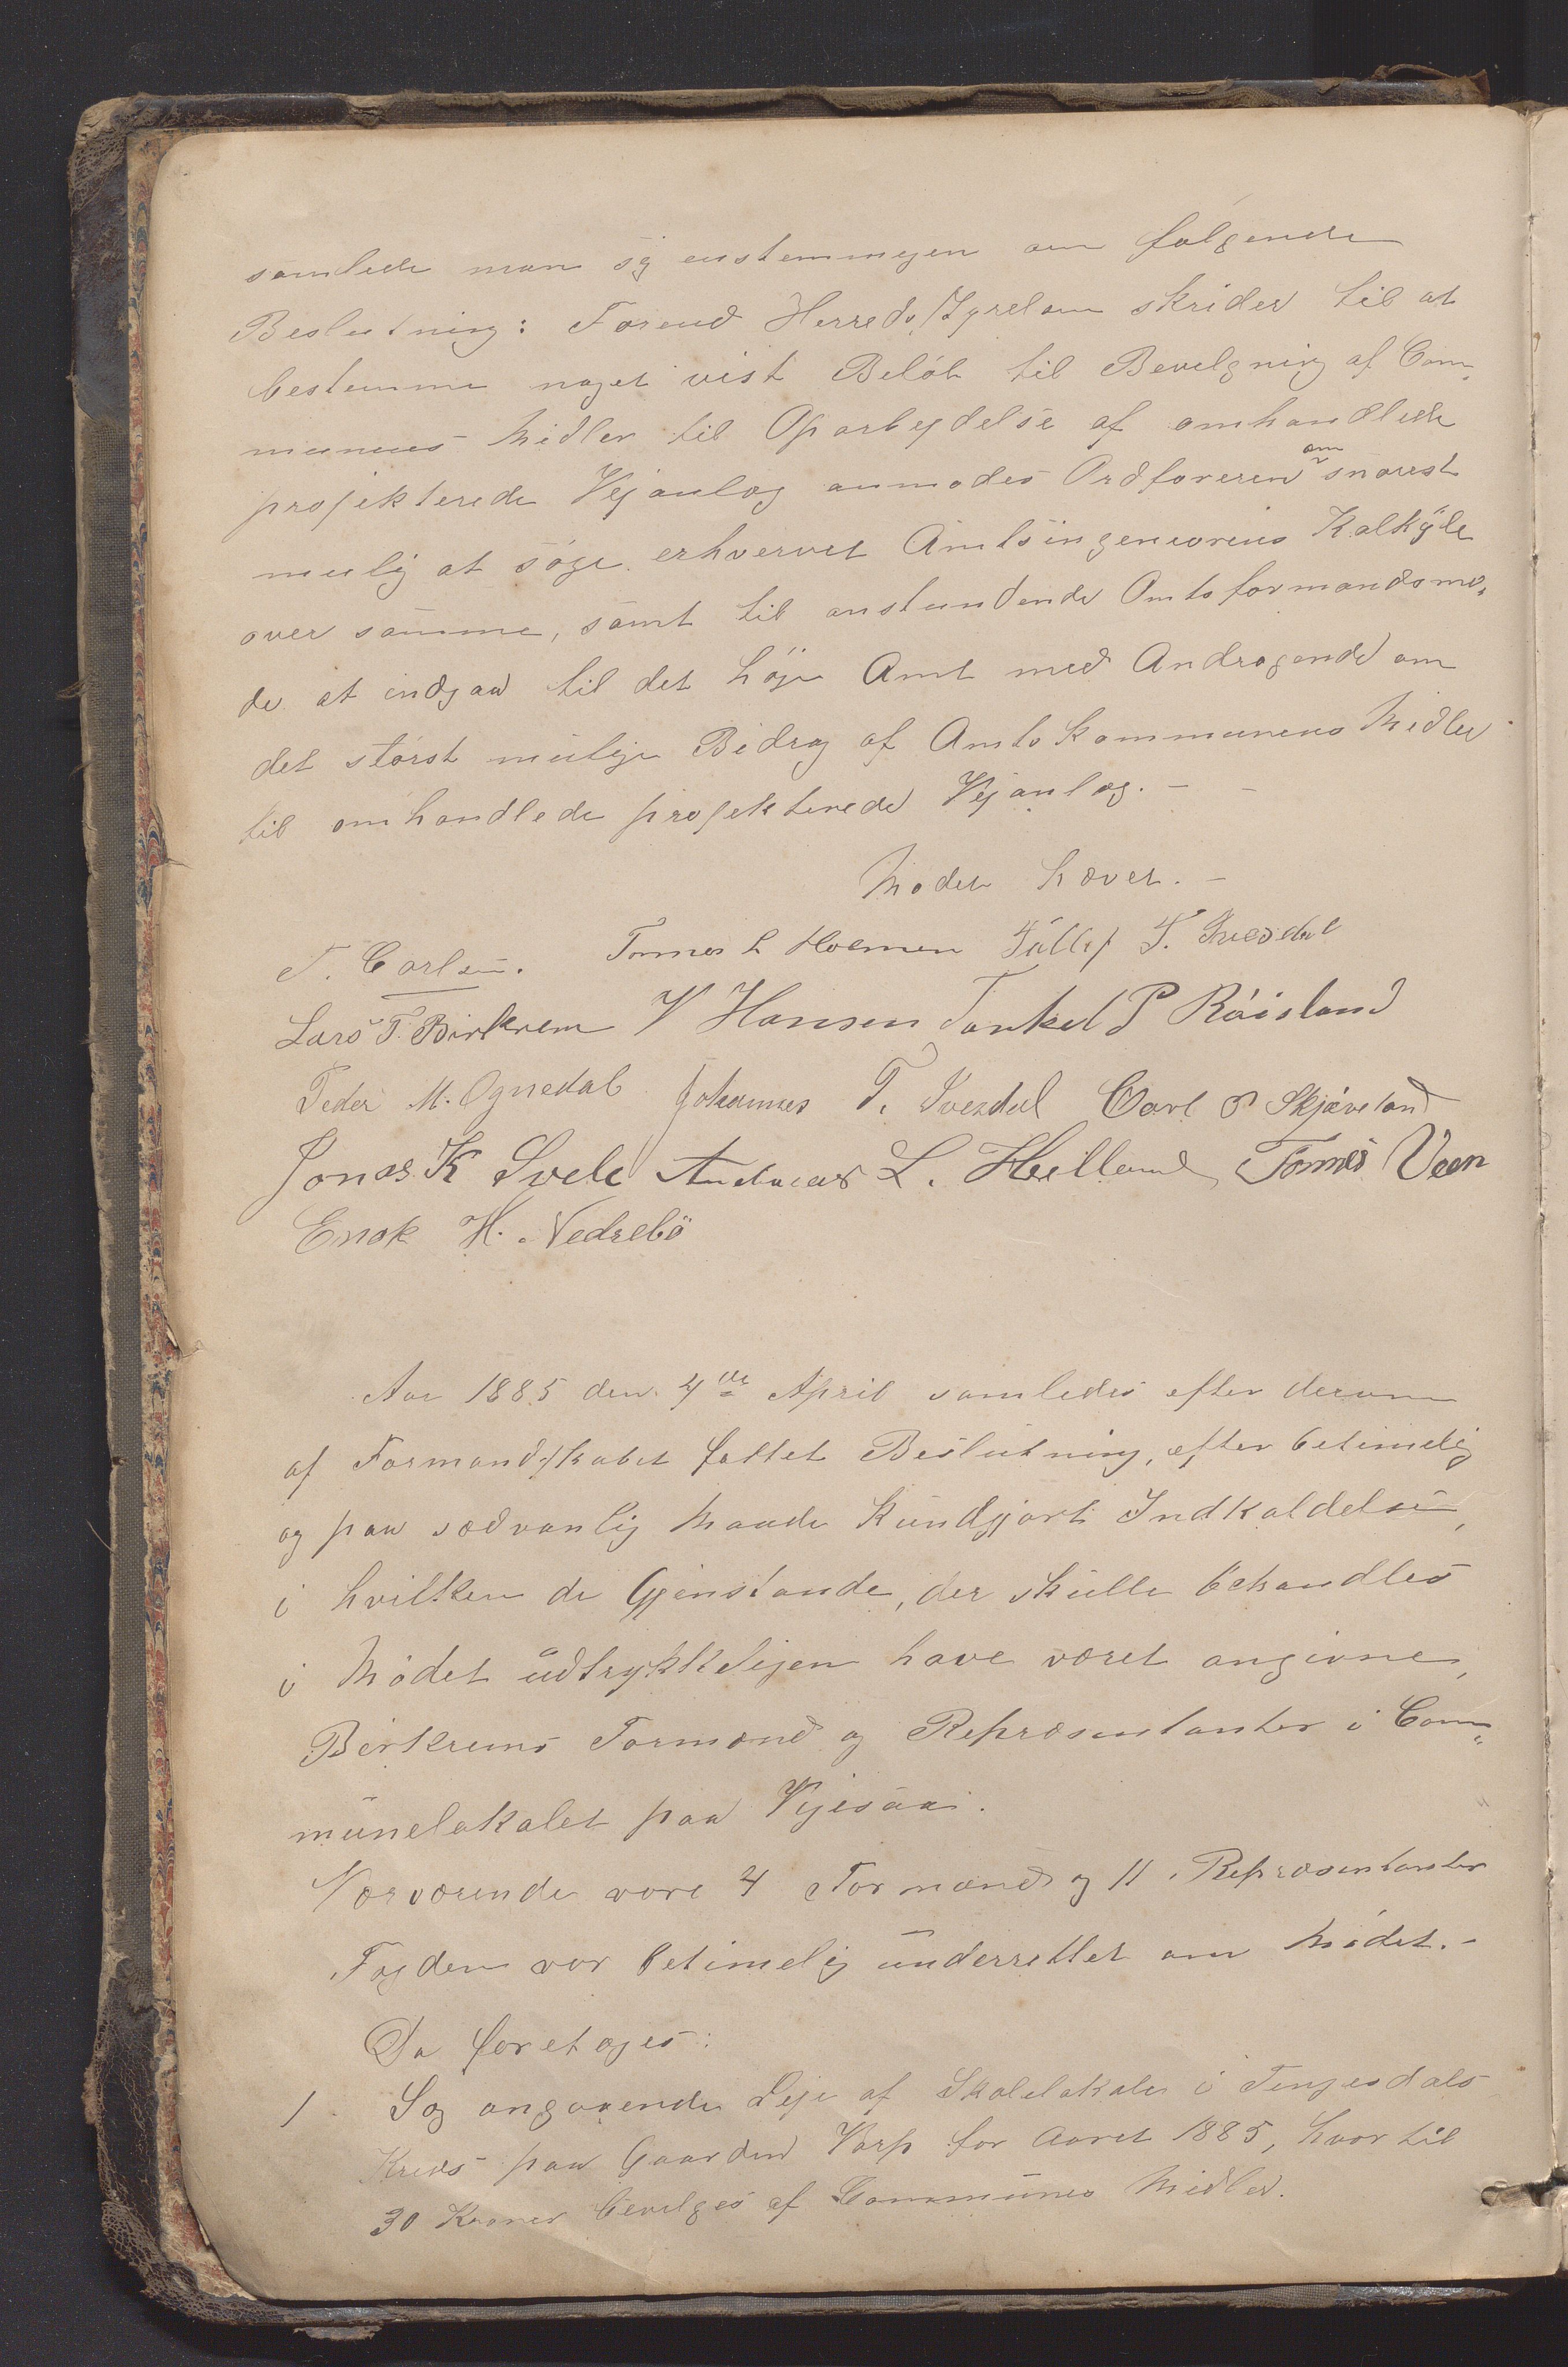 samlede man sig enstemmigen om følgende
Beslutning: Forend Herredsstyrelsen skrider til at
bestemme noget vist Beløb til Bevilgning af Com„
munens Midler til Oparbejdelse af omhandlede
projekterede Vejanlæg anmodes Ordføreren om snarest
mulig at søge erhvervet Amtsingeneurens Kalkyle
over samme, samt til anstundende Amtsformandsmø„
de at indgaa til det høje Amt med Andragende om
det størst mulige Bidrag af Amtskommunens Midler
til omhandlede projekterede Vejanlæg. –
Mødet hævet. –
T. Carlsen. Tønnes L Hoemen Tøllef T. Ivesdal
Lars T. Birkrem V Hansen Tønkel P Røisland
Peder M. Ognedal Johannes T. Ivesdal Carl P Skjæveland
Jonas K Svele Andreas L. Helland Tønnes Veen
Enok H. Nedrebø
Aar 1885 den 4de April samledes efter derom
af Formandskabet fattet Beslutning, efter betimelig
og paa sædvanlig Maade kundgjort Indkaldelse,
i hvilken de Gjenstande, der skulle behandles
i Mødet udtrykkeligen have været angivne,
Birkrems Formænd og Repræsentanter i Com„
munelokalet paa Vigesaa.
Nærværende vare 4 Formænd og 11 Repræsentanter
Fogden var betimelig underrettet om Mødet. –
Da foretoges:
1. Sag angaaende Leje af Skolelokale i Tengesdals
Kreds paa Gaarden Varp for Aaret 1885, hvortil
30 Kroner bevilges af Communes Midler.